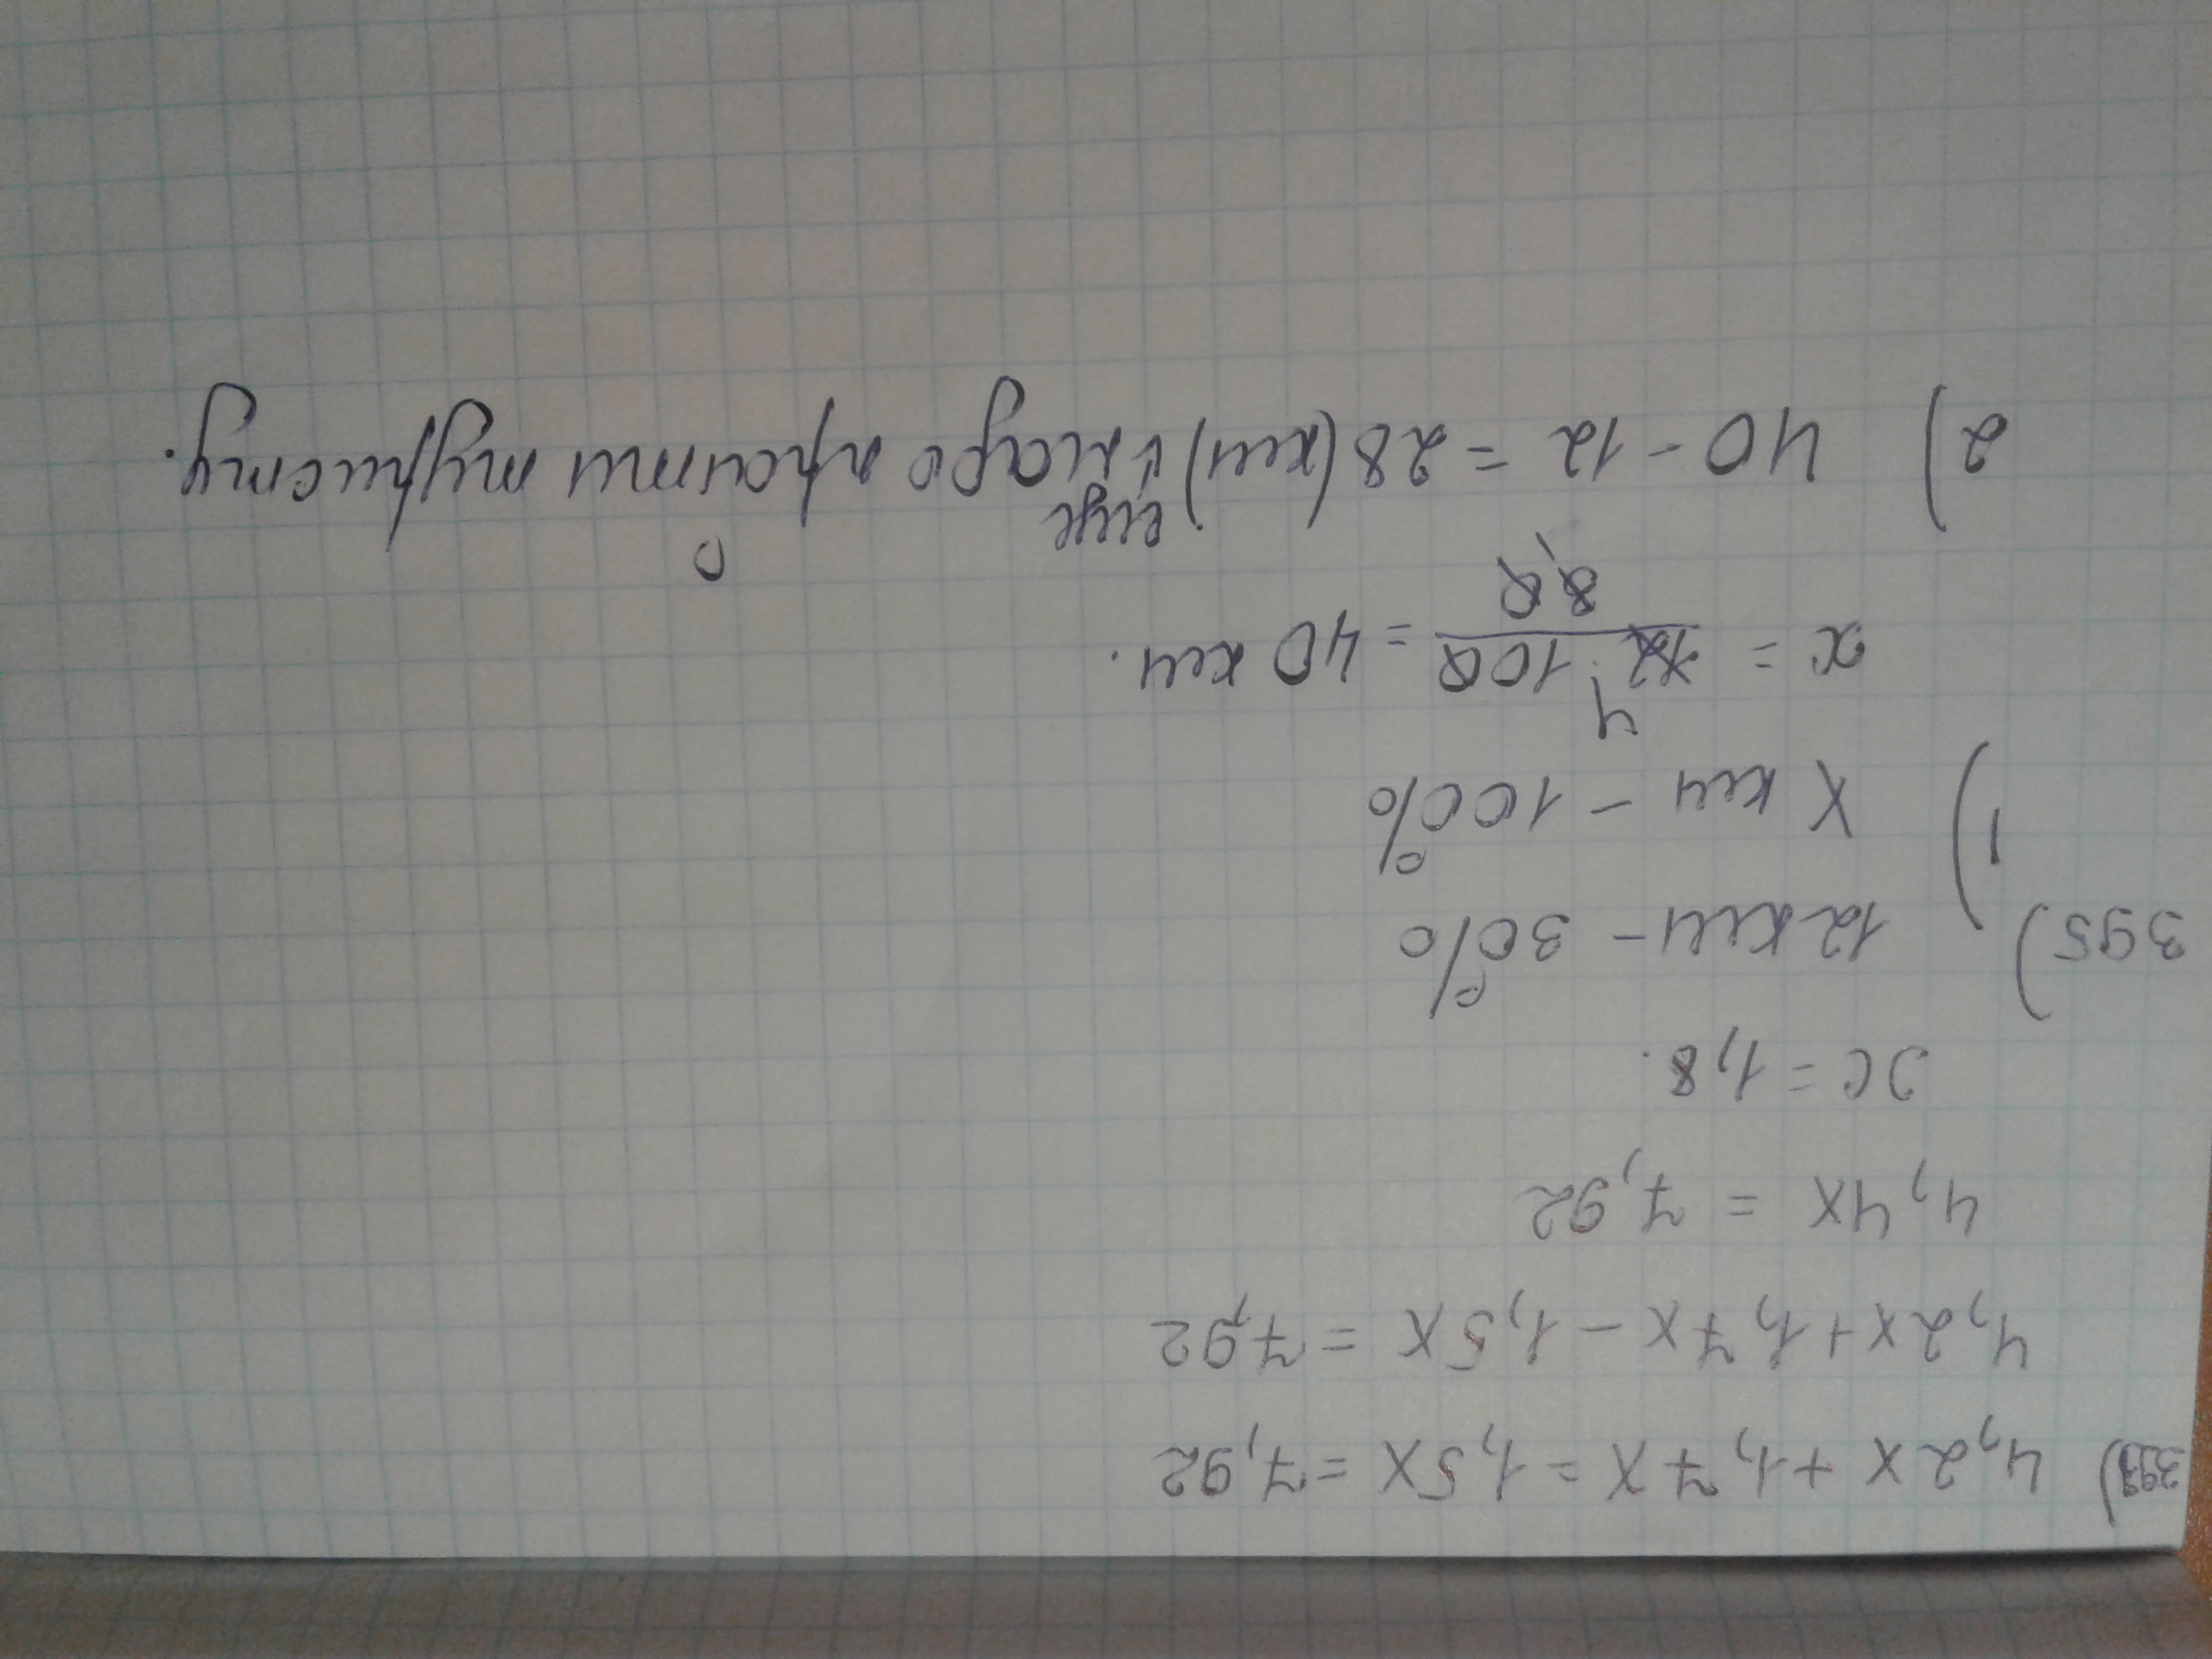 393) 4,2x + 1,7x = 1,5x = 7,92
4,2x + 1,7x - 1,5x = 7,92
4,4x = 7,92
x = 1,8.
395) 12 км - 30%
1) x км - 100%
4
x = 12 · 100 / 30 = 40 км.
2) 40 - 12 = 28 (км) надо пройти туристу.
еще